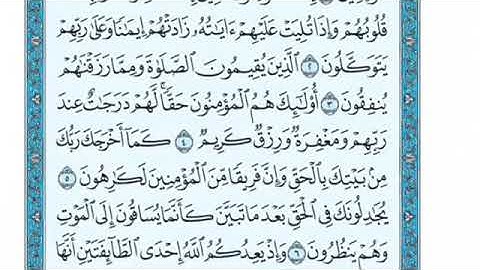 قُلُوبُهُمْ وَإِذَا تُلِيَتْ عَلَيْهِمْ ءَايَٰتُهُۥ زَادَتْهُمْ إِيمَٰنًا وَعَلَىٰ رَبِّهِمْ
يَتَوَكَّلُونَ ٢ ٱلَّذِينَ يُقِيمُونَ ٱلصَّلَوٰةَ وَمِمَّا رَزَقْنَٰهُمْ
يُنفِقُونَ ٣ أُو۟لَٰٓئِكَ هُمُ ٱلْمُؤْمِنُونَ حَقًّا لَّهُمْ دَرَجَٰتٌ عِندَ
رَبِّهِمْ وَمَغْفِرَةٌ وَرِزْقٌ كَرِيمٌ ٤ كَمَآ أَخْرَجَكَ رَبُّكَ
مِنۢ بَيْتِكَ بِٱلْحَقِّ وَإِنَّ فَرِيقًا مِّنَ ٱلْمُؤْمِنِينَ لَكَٰرِهُونَ ٥
يُجَٰدِلُونَكَ فِى ٱلْحَقِّ بَعْدَ مَا تَبَيَّنَ كَأَنَّمَا يُسَاقُونَ إِلَى ٱلْمَوْتِ
وَهُمْ يَنظُرُونَ ٦ وَإِذْ يَعِدُكُمُ ٱللَّهُ إِحْدَى ٱلطَّآئِفَتَيْنِ أَنَّهَا